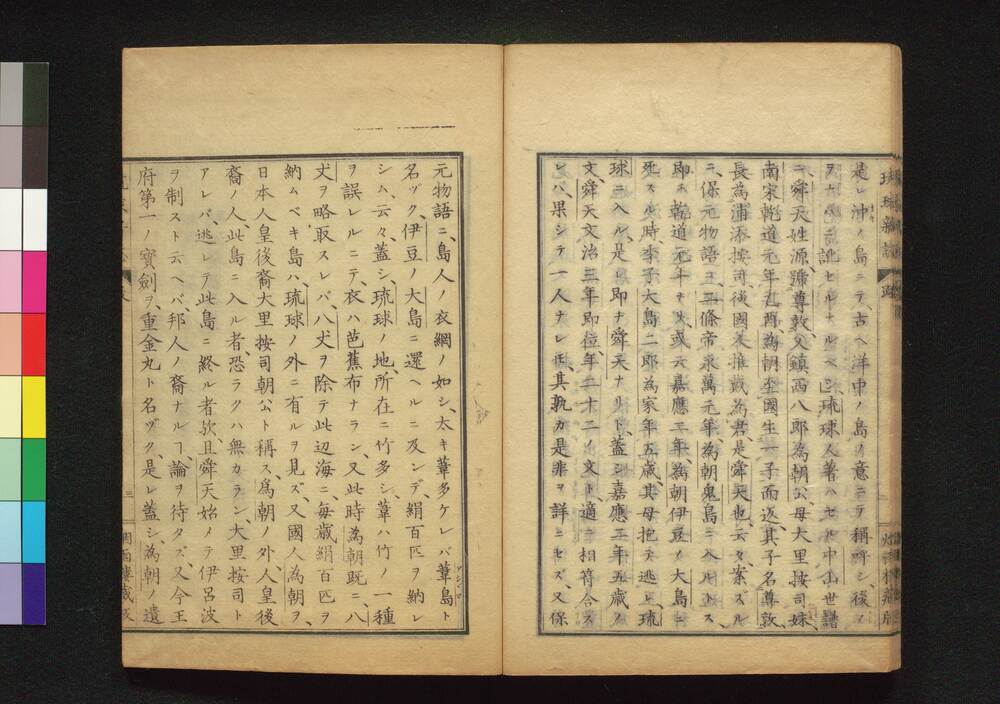 是レ沖ノ島ニテ、古ヘ洋中ノ島ノ意ニテ稱所シ、後
訛セルナルベシ、琉球人著ハセル中山世譜
ニ、舜天姓源、號尊敦、父鎮西八郎為朝公、母大里按司妹、
南宋乾道元年乙酉、為朝至國生一子而返、其子名尊敦、
長為浦添按司、後國人推戴為君、是舜天也、云々案ズル
ニ、保元物語ニ、二條帝永萬元年、為朝鬼島ニ入ルトス、
即ホ乾道元年ナリ、或云嘉應二年、為朝伊豆ノ大島ニ
死スル時、季子大島二郎為家年五歳、其母抱テ逃レ琉
球ニ入ル、是即ナ舜天ナリト、蓋シ嘉應二年五歳ノ
文、舜天文治三年即位、年二十二ノ文ト、適ニ相符合ス
レバ、果シテ一人ナレ𪜈、其孰カ是非ヲ詳ニセズ、又保
元物語ニ、島人ノ衣網ノ如シ、太キ葦多ケレバ葦島ト
名ヅク、伊豆ノ大島ニ還ヘルニ及ンデ、絹百匹ヲ納レ
シム、云々、蓋シ、琉球ノ地、所在ニ竹多シ、葦ハ竹ノ一種
ヲ誤レルニテ、衣ハ芭蕉布ナラン、又此時為朝既ニ、八
丈ヲ略取スレバ、八丈ヲ除テ此辺海ニ、毎歳絹百匹ヲ
納ムベキ島ハ、琉球ノ外ニ有ルヲ見ズ、又國人為朝ヲ、
日本人皇後裔大里按司朝公ト稱ス、爲朝ノ外人皇後
裔ノ人、此島ニ入ル者、恐ラクハ無カラン、大里按司ト
アレバ、逃レテ此島ニ終ル者歟、且舜天始メテ伊呂波
ヲ制スト云ヘバ、邦人ノ裔ナルヿ、論ヲ待タズ、又今王
府第一ノ寶劍ヲ、重金丸ト名ヅク、是レ蓋シ、為朝ノ遺